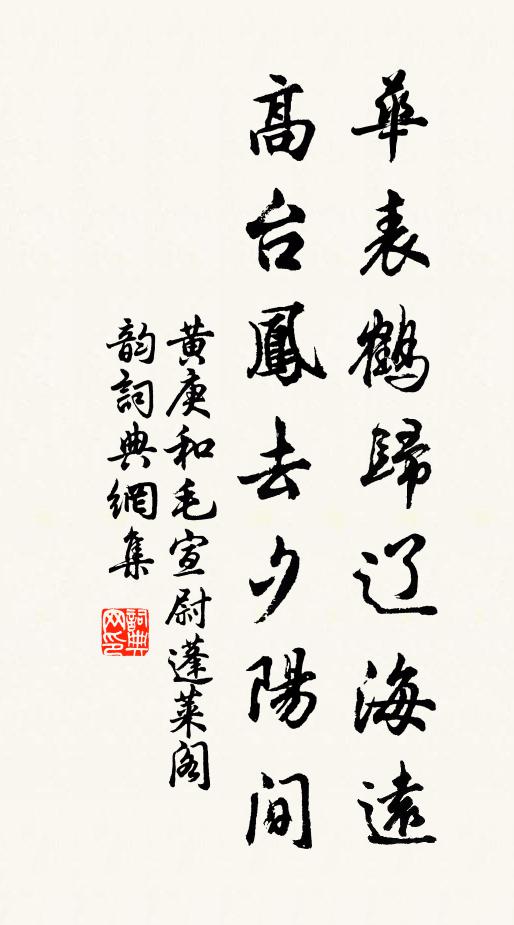 華表鶴歸辽海遠
高台鳳去夕陽間
黄庚和毛宣尉蓬莱阁
韵詞典網集
詞典网印